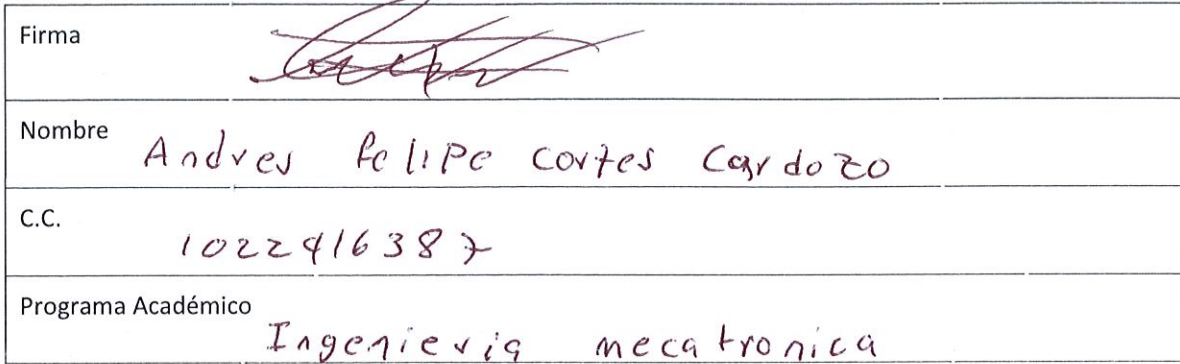 Firma
Nombre Andres Felipe cortes Cardozo
C.C. 1022416387
Programa Académico Ingenieria mecatronica